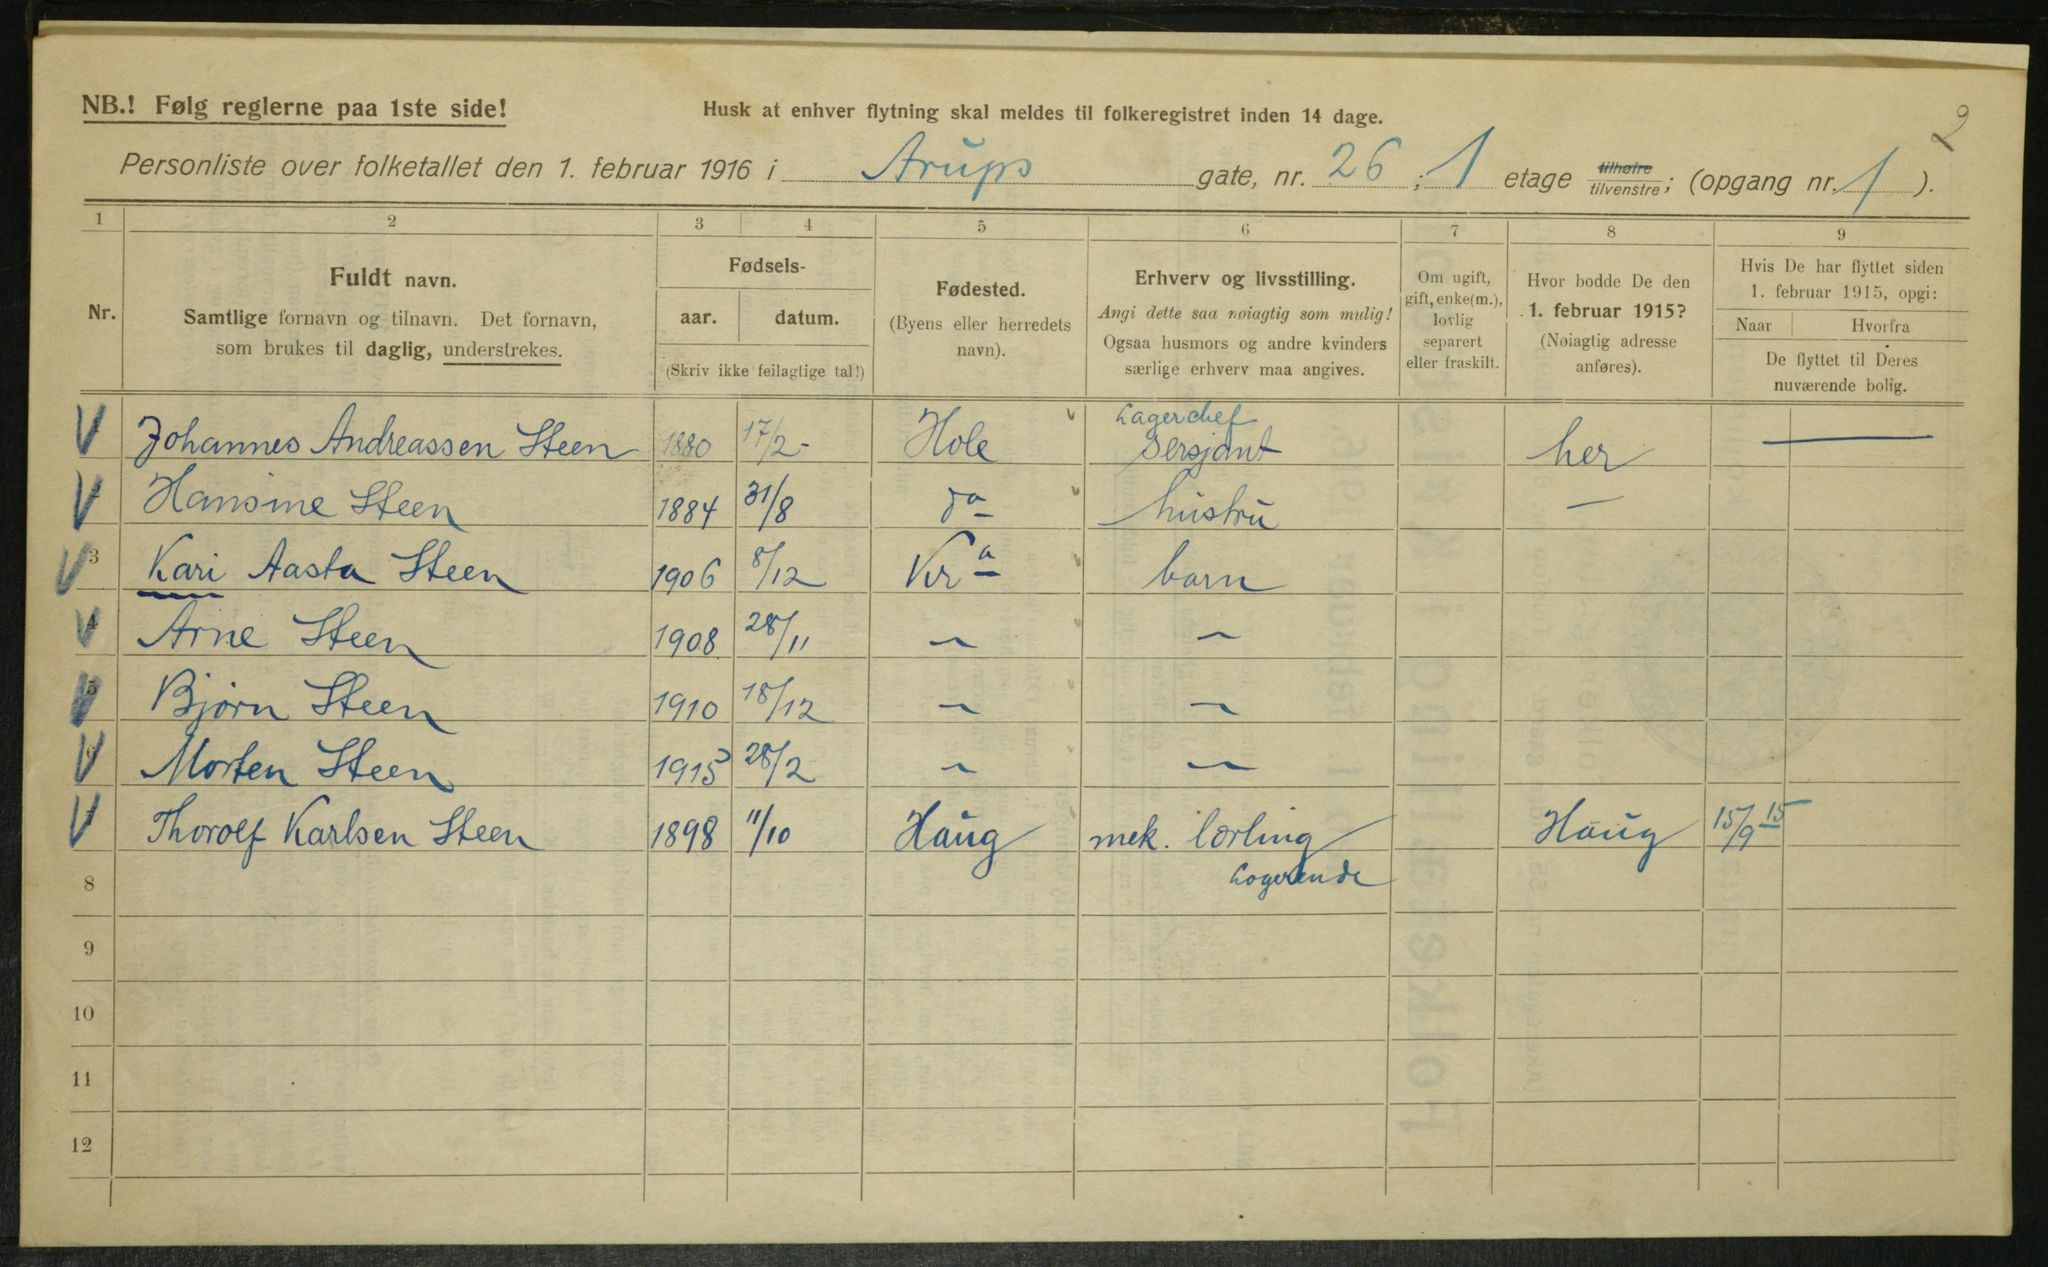 NB.! Følg reglerne paa 1ste side!
Husk at enhver flytning skal meldes til folkeregistret inden 14 dage.
2
Personliste over folketallet den 1. februar 1916 i Arups gate, nr. 26; 1 etage tilhøire tilvenstre; (opgang nr. 1 ).
1 2 3 4 5 6 7 8 9
Nr.
Fuldt navn.
Samtlige fornavn og tilnavn. Det fornavn,
som brukes til daglig, understrekes.
Fødsels-
aar. datum.
(Skriv ikke feilagtige tal!)
Fødested.
(Byens eller herredets
navn).
Erhverv og livsstilling.
Angi dette saa nøiagtig som mulig!
Ogsaa husmors og andre kvinders
særlige erhverv maa angives.
Om ugift,
gift, enke(m.),
lovlig
separert
eller fraskilt.
Hvor bodde De den
1. februar 1915?
(Nøiagtig adresse
anføres).
Hvis De har flyttet siden
1. februar 1915, opgi:
Naar Hvorfra
De flyttet til Deres
nuværende bolig.
Lagerchef
Johannes Andreassen Steen 1880 17/2 - Hole Sersjant her —
Hansine Steen 1884 31/8 do hustru —
3 Kari Aasta Steen 1906 8/12 Kra barn
4 Arne Steen 1908 28/11 — —
5 Bjørn Steen 1910 18/12 — —
6 Morten Steen 1915 28/2 — —
Thorolf Karlsen Steen 1898 11/10 Haug mek. lærling Haug 15/9 15
8 Logerende
9
10
11
12